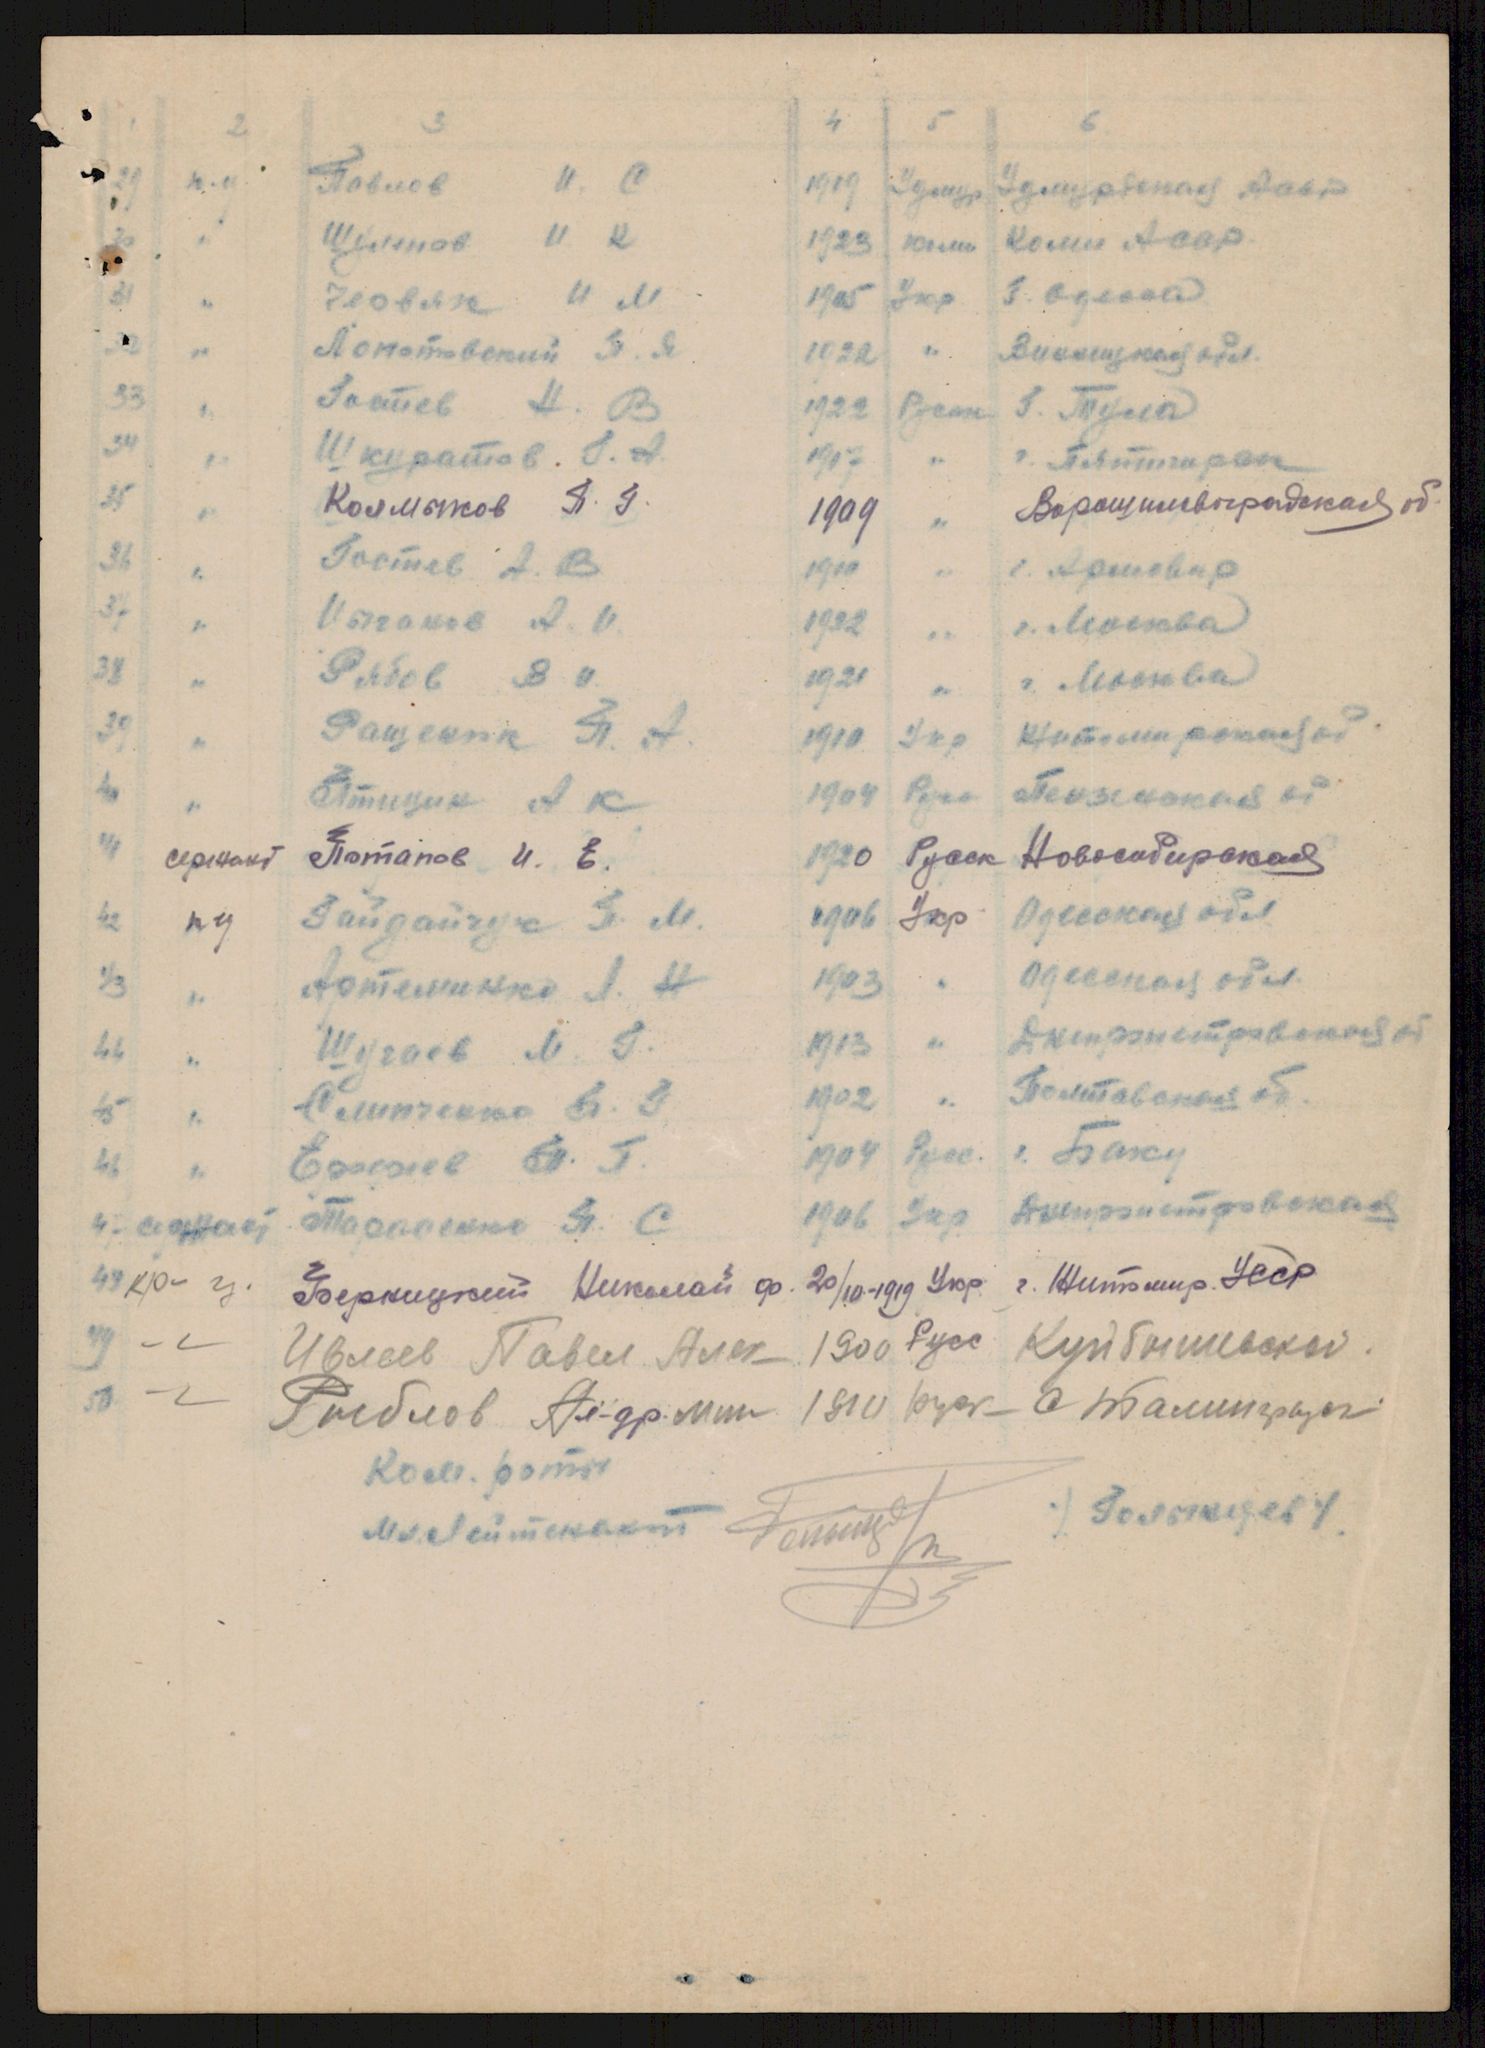 1 2 3 4 5 6
29 к-ц Павлов И. С 1919 Удмур Удмуртская Аавр
30 " И К 1923 коми Коми Асср.
31 " Человяк И М 1905 Укр Г. Одесса
32 " Лопатовский П. Я 1922 " Винницкая обл.
33 " Гостев Н. В 1922 Русск Г. Тула
34 " Шкуратов Г. А. 1917 " г. Пятигорск
35 " Колмыков П. Г. 1909 " Ворошиловградская об.
36 " Гостев А. В 1910 " г. Армавир
37 " А. И. 1922 " г. Москва
38 " Рябов В И. 1921 " г. Москва
39 " Ращепк П. А. 1910 Укр Житомирская об.
40 " Птицин А К 1904 Русс Пензенская об
41 сержант Потапов И. Е. 1920 Русск Новосибирская
42 к ц Гайдайчук П. М. 1906 Укр Одесская обл
43 " Артеменко Л. Н 1903 " Одесская обл.
44 " Шугаев М. Г. 1913 " Днепропетровская об
45 " Слипченко П. Г 1902 " Полтавская об.
46 " П. Г. 1904 Русс. г. Баку
47 сержант Тарасенко П. С 1906 Укр Днепропетровская
48 кр-ц. Берницкий Николай ф. 20/10-1919 Укр. г. Житомир. УССР
49 -"- Ивлев Павел Алек 1900 Русс Куйбышевской.
50 -"- Рыблов Ал-др. Мих 1910 русс Сталинградск
Ком. роты
Мл. Лейтенант /Голынцев/